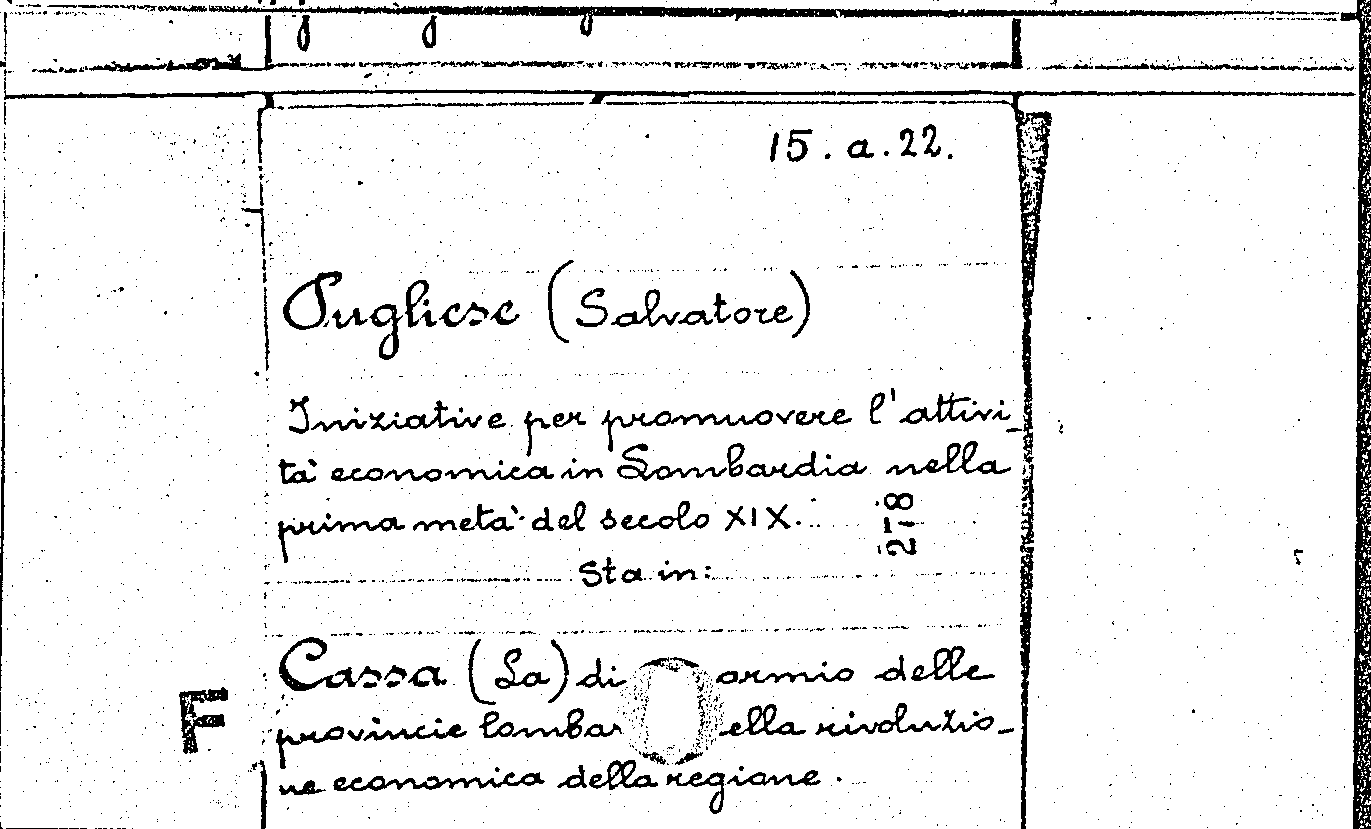 15.a.22.
Pugliese (Salvatore)
Iniziative per promuovere l'attivi_
tà economica in Lombardia nella
prima metà del secolo XIX.
218
Sta in:
Cassa (La) di armio delle
F
provincie lombar ella rivoluzio_
ne economica della regione.